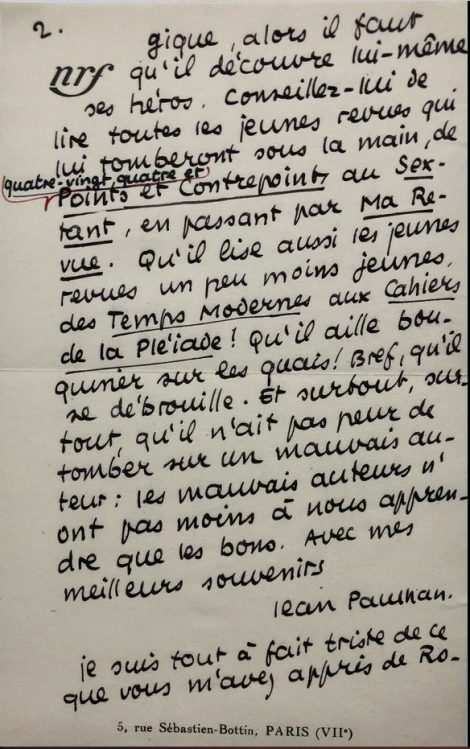 2.
gique, alors il faut
nrf qu'il découvre lui-même
ses héros. Conseillez-lui de
lire toutes les jeunes revues qui
lui tomberont sous la main, de
quatre-vingt quatre et
Points et Contrepoints au Sex-
tant, en passant par Ma Re-
vue. Qu'il lise aussi les jeunes
revues un peu moins jeunes,
des Temps Modernes aux Cahiers
de la Pléiade! Qu'il aille bou-
quiner sur les quais! Bref, qu'il
se débrouille. Et surtout, sur-
tout qu'il n'ait pas peur de
tomber sur un mauvais au-
teur: les mauvais auteurs n'
ont pas moins à nous appren-
dre que les bons. Avec mes
meilleurs souvenirs
Jean Paulhan.
je suis tout à fait triste de ce
que vous m'avez appris de Ro-
5, rue Sébastien-Bottin, PARIS (VIIe)